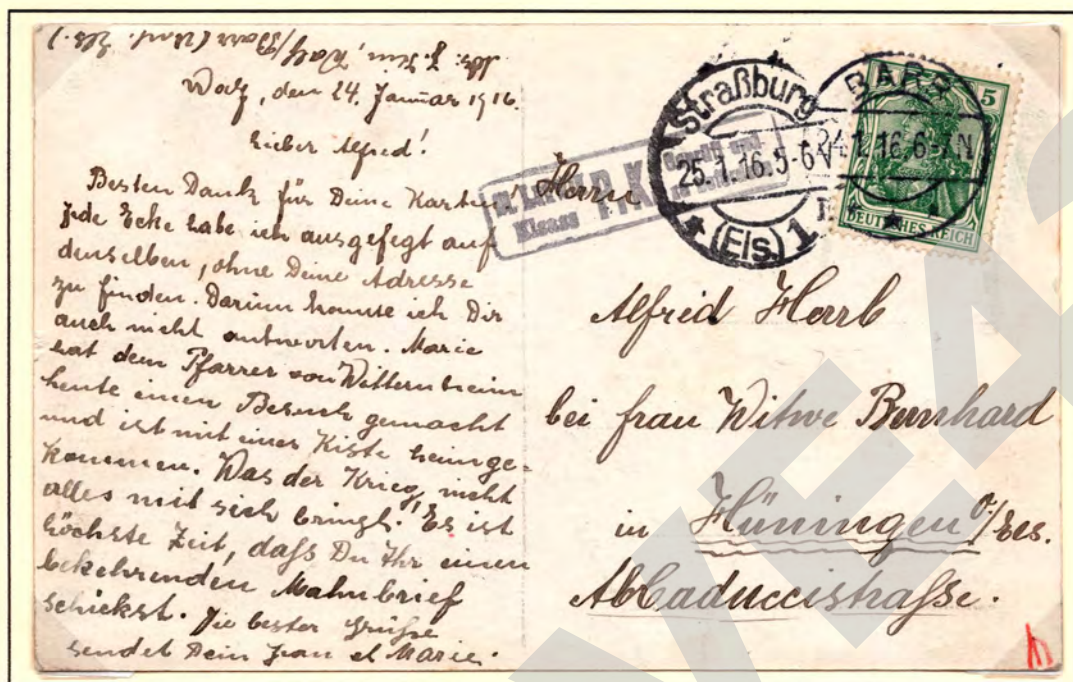 Adr. J. Hein, Walf/Barr (Unt. Els.)
Walf, den 24. Januar 1916.
Lieber Alfred!
Besten Dank für Deine Karten!
Jede Ecke habe ich ausgefegt auf
denselben, ohne Deine Adresse
zu finden. Darum konnte ich Dir
auch nicht antworten. Marie
hat dem Pfarrer von Witternheim
heute einen Besuch gemacht
und ist mit einer Kiste heimge-
kommen. Was der Krieg nicht
alles mit sich bringt! Es ist
höchste Zeit, daſs Du Ihr einen
bekehrenden Mahnbrief
schickst. Die bester Grüſse
sendet Dein Jean et Marie.
Straßburg
25.1.16.5-6V
(Els.) 1
BARR
24.1.16.6-7N
5
DEUTSCHES REICH
Elsass P.K.
Herrn
Alfred Herrb
bei Frau Witwe Bernhard
in Hüningen O/Els.
Abbaduccistraſse.